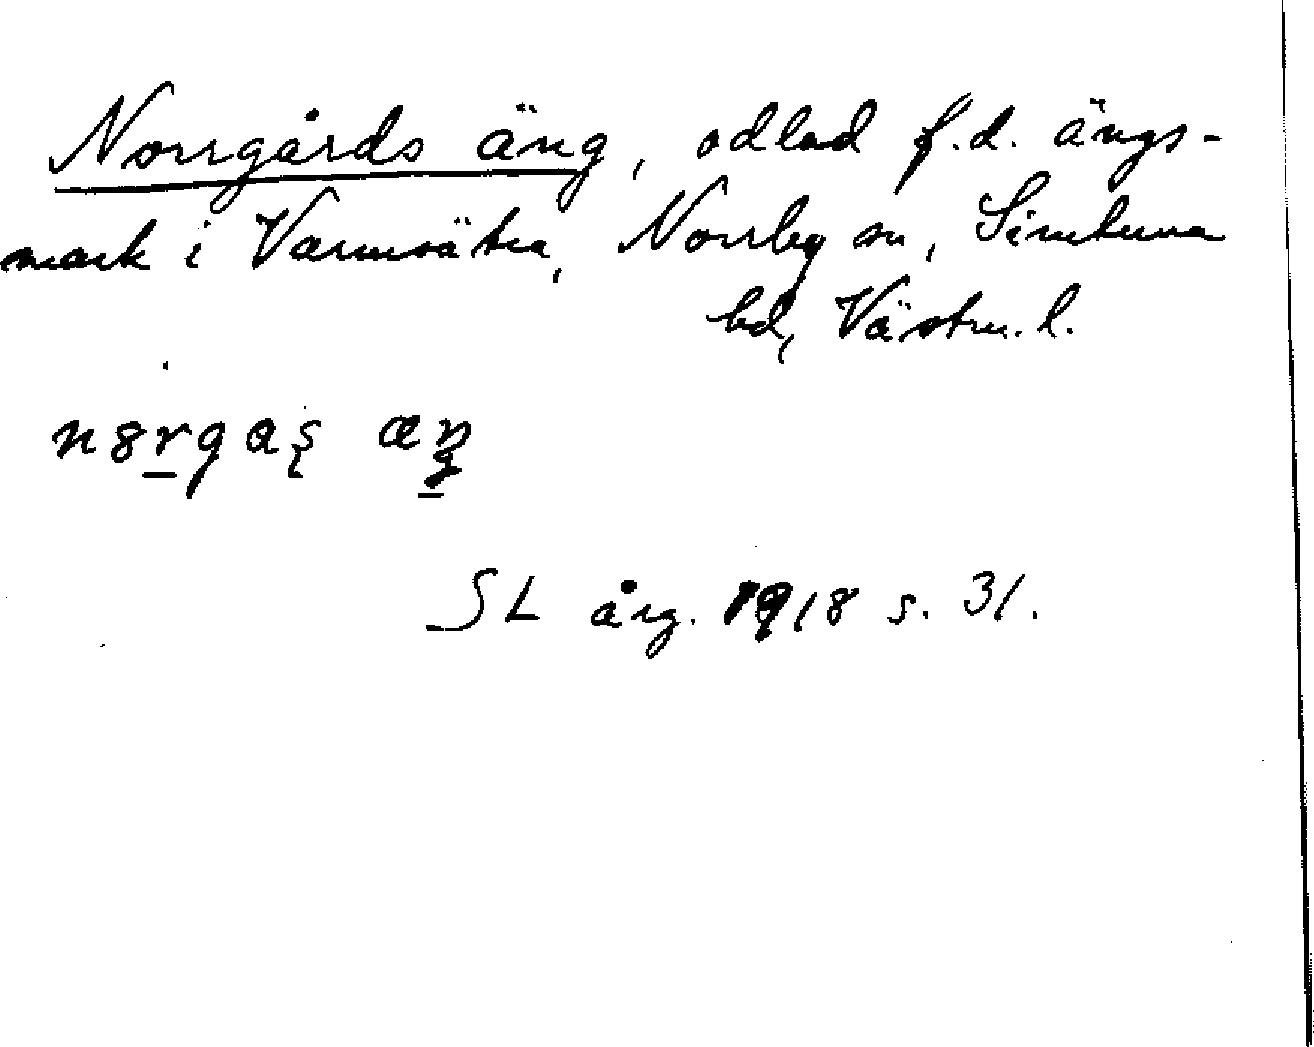 Norrgårds äng, odlad f.d. ängs-
mark i Varmsätra, Norrby sn, Simtuna
hd, Västm. l.
n8rgaş æŋ
SL årg. 1918 s. 31.